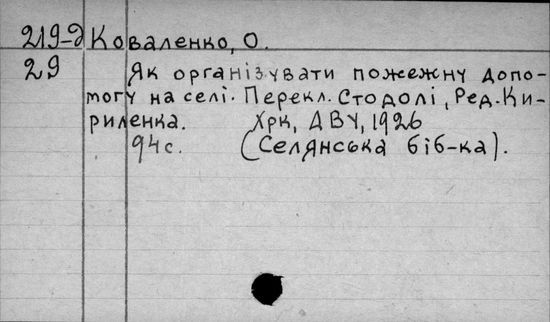 219-д Коваленко, О.
29 Як організувати пожежну допо-
могу на селі. Перекл. Стодолі, Ред. Ки-
риленка. Хрк, ДВУ, 1926
94с. (Селянська біб-ка).